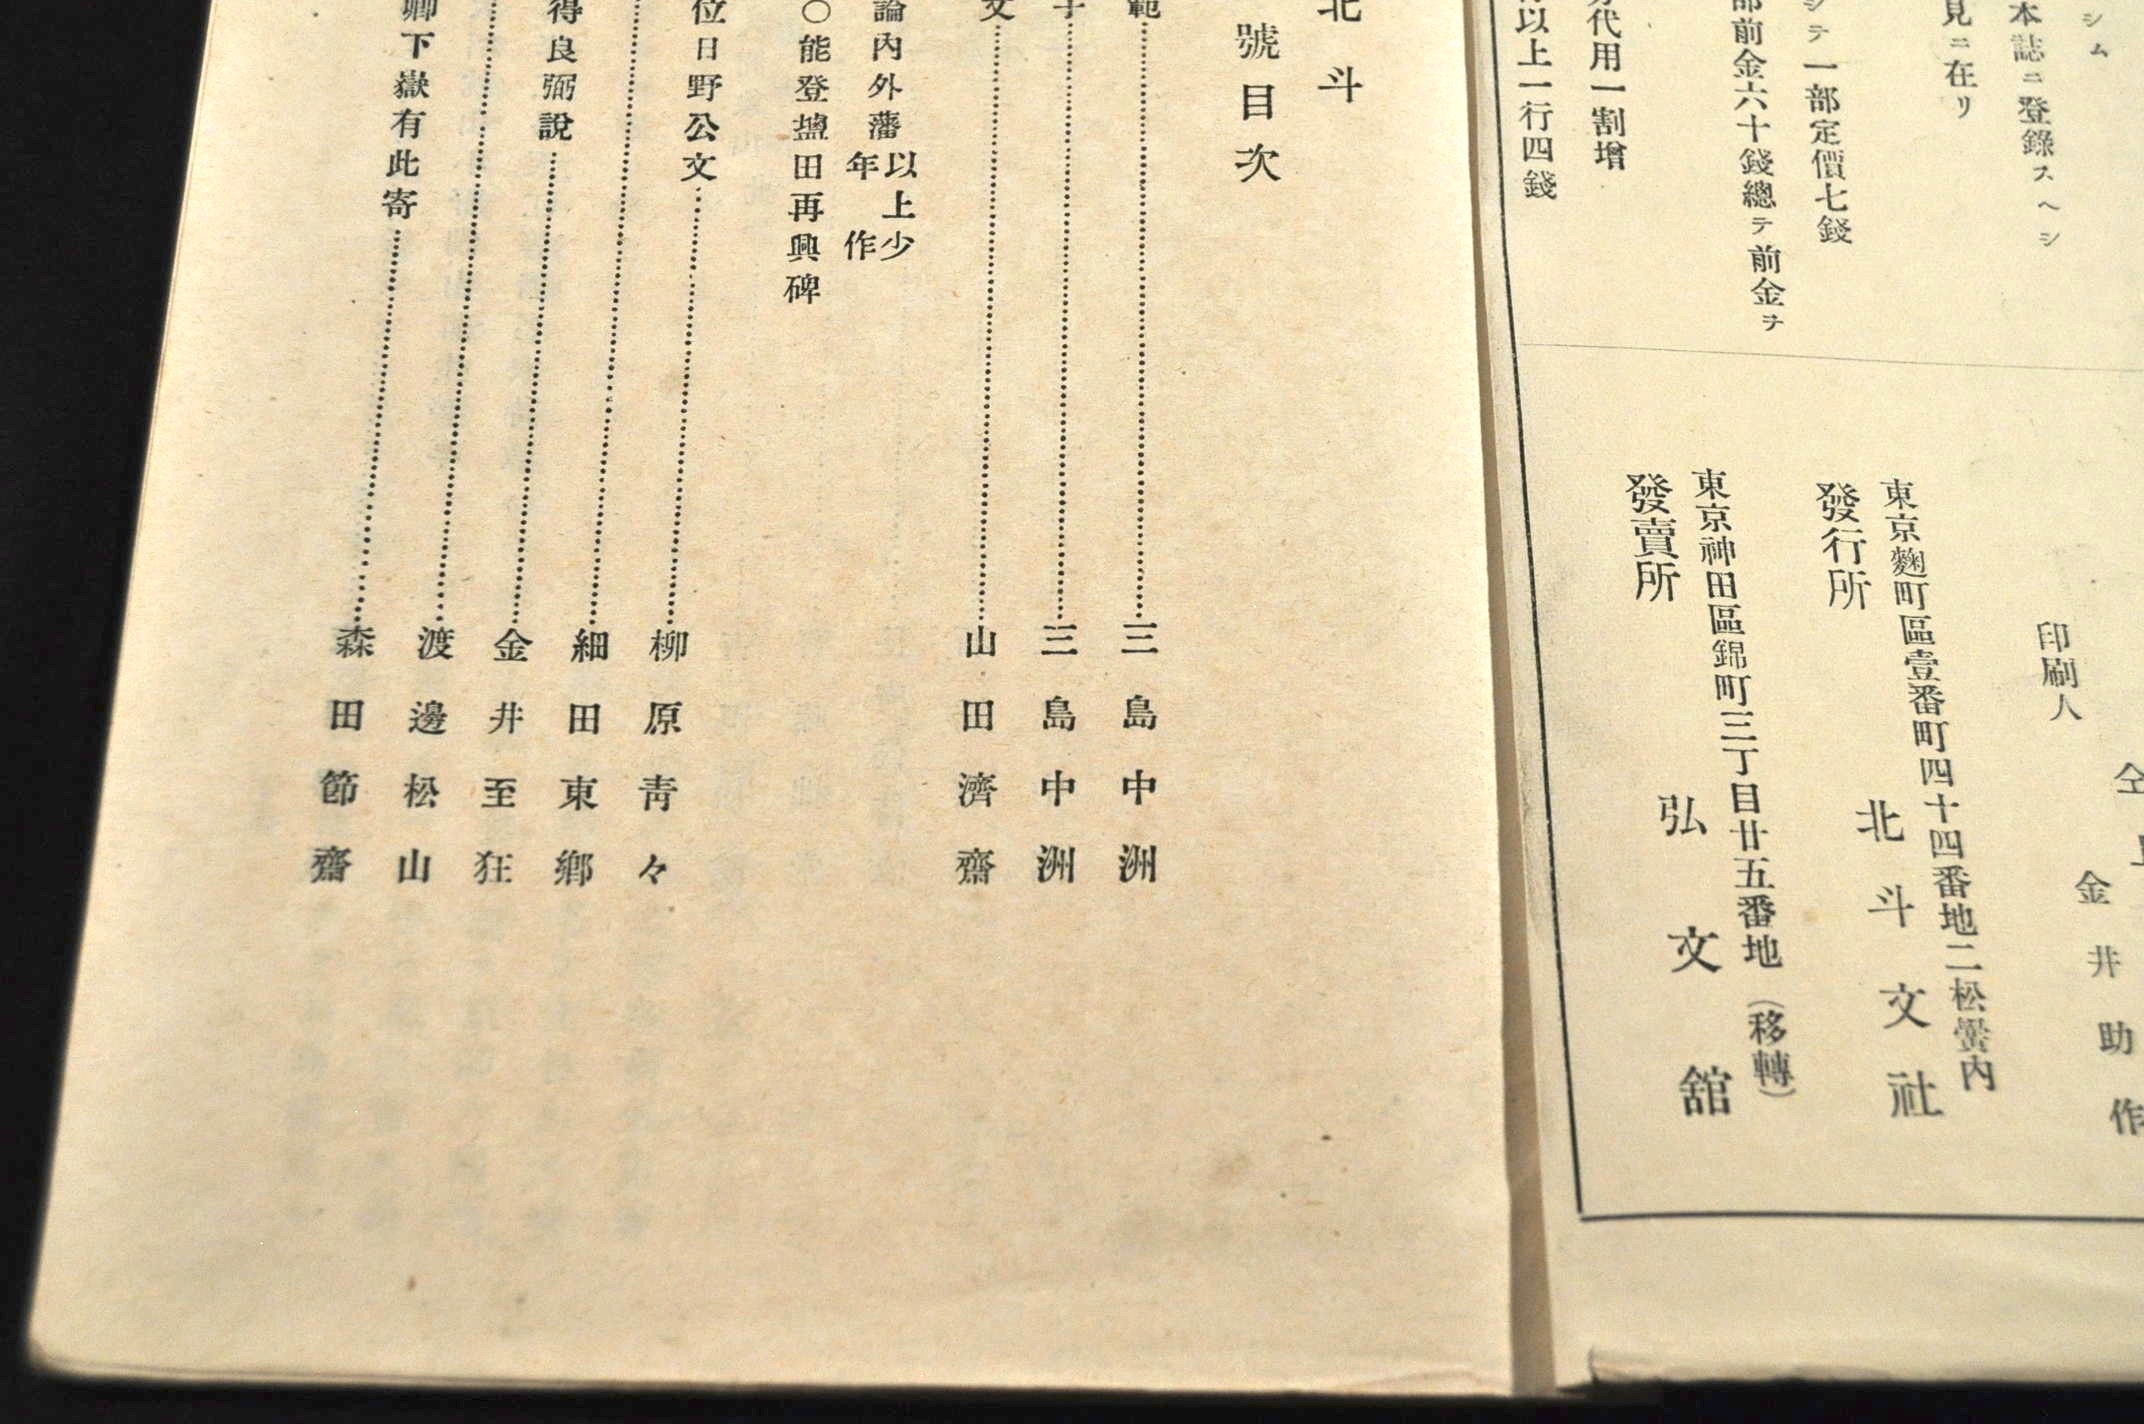 シム
本誌ニ登錄スヘシ
見ニ在リ
シテ一部定價七錢
部前金六十錢總テ前金ヲ
代用一割增
以上一行四錢
印刷人
仝
金井助作
東京麴町區壹番町四十四番地二松黌內
發行所
北斗文社
東京神田區錦町三丁目廿五番地(移轉)
發賣所
弘文舘
北斗
號目次
範………三島中洲
子………三島中洲
文………山田濟齋
論內外藩以上少年作
〇能登塩田再興碑
位日野公文………柳原靑々
………細田東鄕
得良弼說………金井至狂
………渡邊松山
卿下嶽有此寄………森田節齋